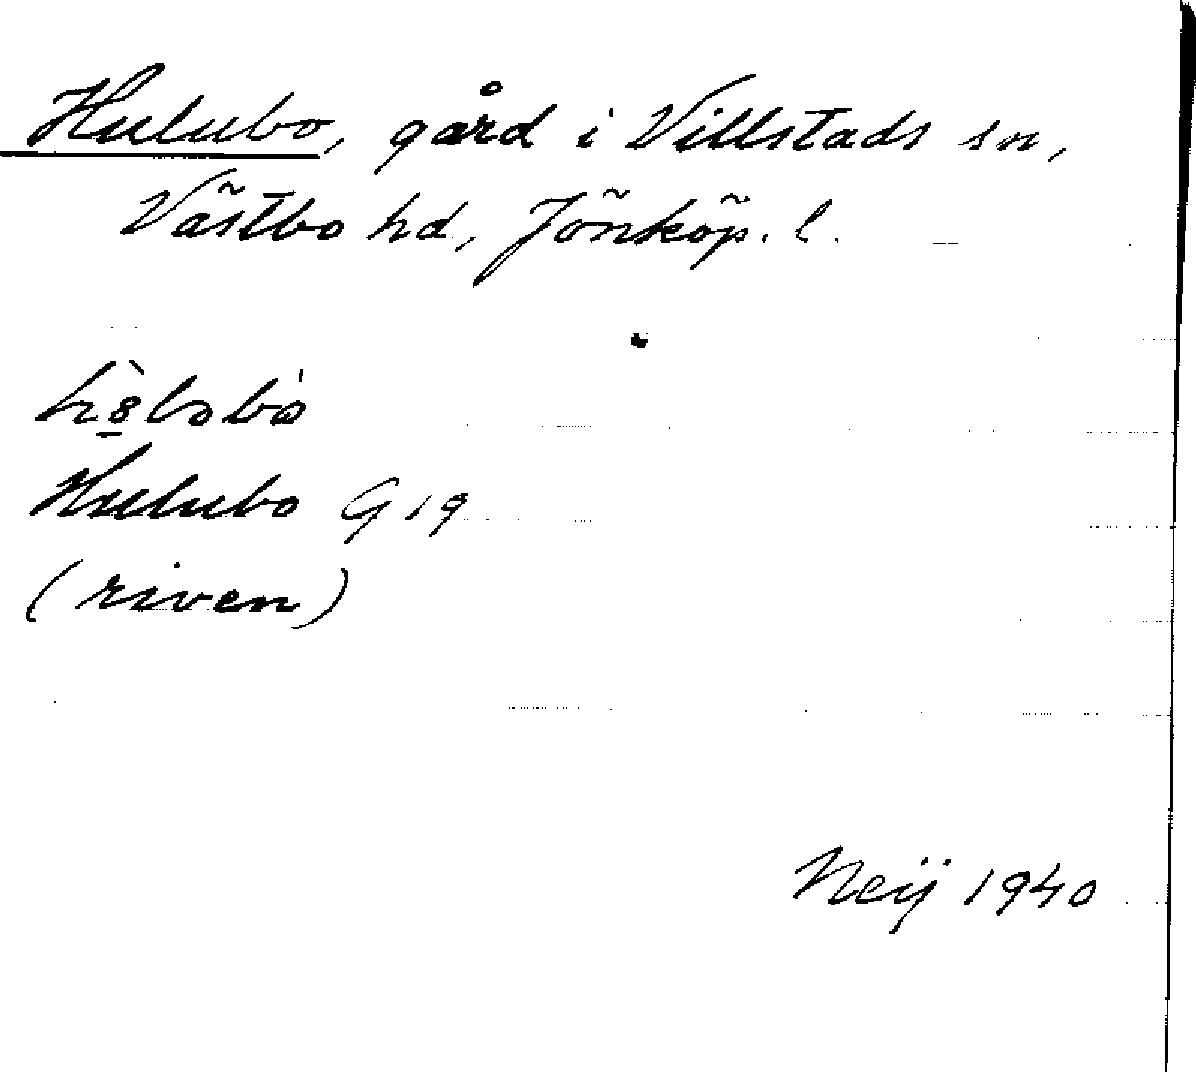 Hulubo, gård i Villstads sn,
Västbo hd, Jönköp. l.
Hulubo G 19
(riven)
Neij 1940